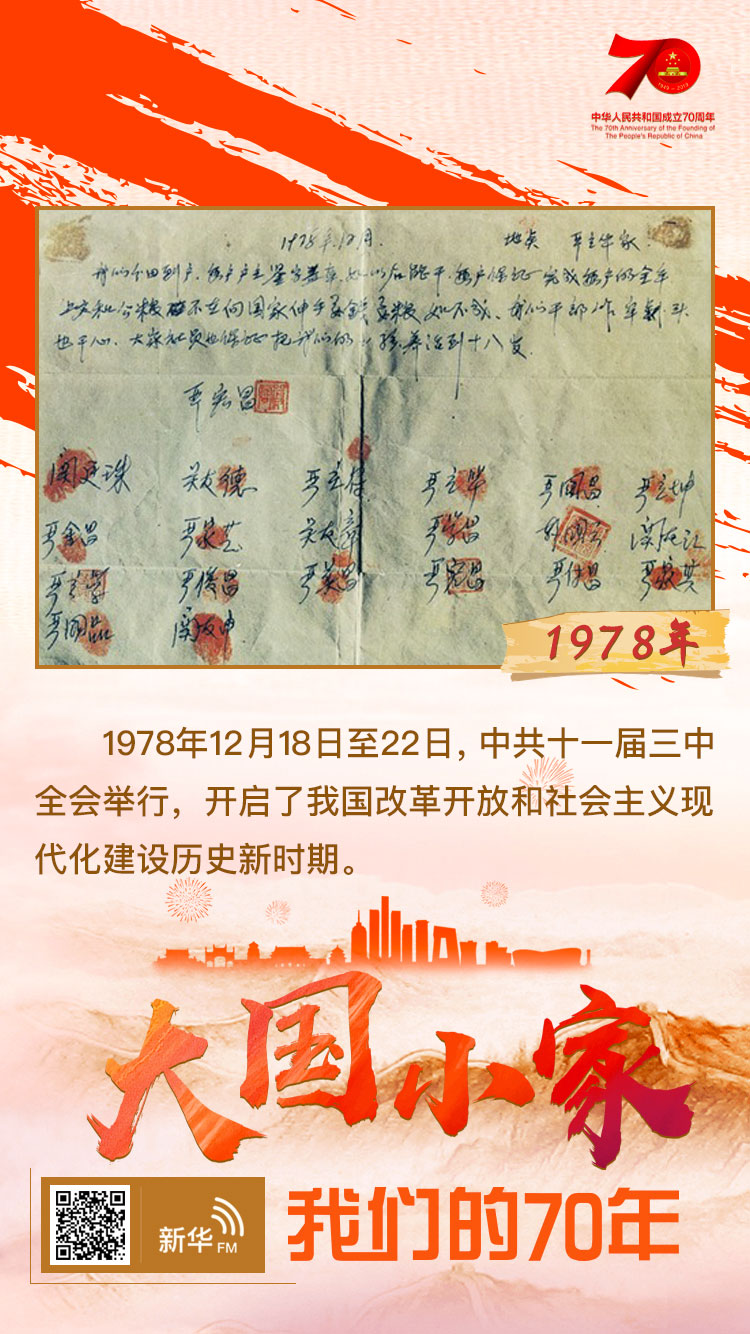 中华人民共和国成立70周年
The 70th Anniversary of the Founding of
The People's Republic of China
1949-2019
1978年12月. 地点 严立华家.
我们分田到户,每户户主签字盖章,如以后能干,每户保证完成每户的全年
上交和公粮不在向国家伸手要钱要粮,如不成,我们干部作牢刹头
也干心,大家社员也保证把我们的小孩养活到十八岁.
严宏昌
关廷珠 关友德 严立符 严立华 严国昌 严立坤
严金昌 严家芝 关友章 严学昌 韩国云 关友江
严立学 严俊昌 严美昌 严宏昌 严付昌 严家其
严国品 关友申
1978年
1978年12月18日至22日,中共十一届三中
全会举行,开启了我国改革开放和社会主义现
代化建设历史新时期。
大国小家
新华FM
我们的70年